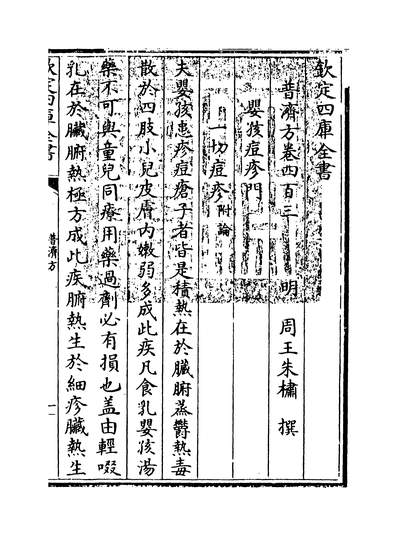 欽定四庫全書
普濟方卷四百三
明　周王朱橚　撰
嬰孩痘疹門
一切痘疹附論
夫嬰孩患疹痘瘡子者皆是積熱在於臟腑蒸鬱熱毒
散於四肢小兒皮膚內嫩弱多成此疾凡食乳嬰孩湯
藥不可與童兒同療用藥過劑必有損也蓋由輕啜
乳在於臟腑熱極方成此疾腑熱生於細疹臟熱生
欽定四庫全書
普濟方
一